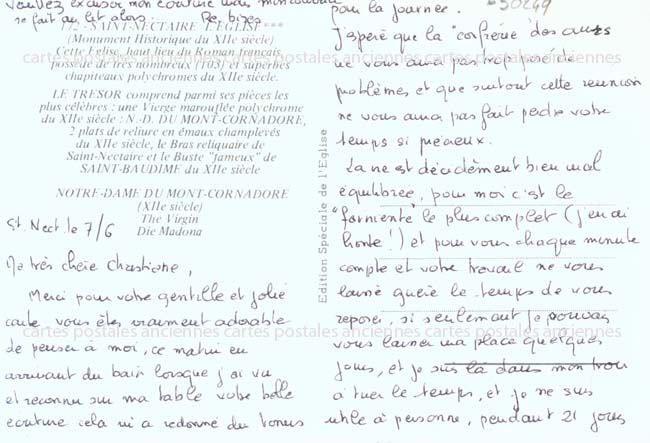 Vouvez excuser mon écriture mais mon courrier
se fait au lit alors. Re. bises
172 - SAINT-NECTAIRE L'EGLISE ***
(Monument Historique du XIIe siècle)
Cette Eglise, haut lieu du Roman français,
possède de très nombreux (103) et superbes
chapiteaux polychromes du XIIe siècle.
LE TRESOR comprend parmi ses pièces les
plus célèbres : une Vierge marouflée polychrome
du XIIe siècle : N.-D. DU MONT-CORNADORE,
2 plats de reliure en émaux champlevés
du XIIe siècle, le Bras reliquaire de
Saint-Nectaire et le Buste "fameux" de
SAINT-BAUDIME du XIIe siècle
NOTRE-DAME DU MONT-CORNADORE
(XIIe siècle)
The Virgin
Die Madona
St. Nect. le 7/6
Ma très chère Christiane,
Merci pour votre gentille et jolie
carte vous êtes vraiment adorable
de penser à moi, ce matin en
arrivant du bain lorsque j'ai vu
et reconnu sur ma table votre belle
écriture cela m'a redonné du tonus
Edition Spéciale de l'Eglise
pour la journée.
50249
J'espère que la "confrérie" des
ne vous aura pas trop posé de
problèmes et que surtout cette réunion
ne vous aura pas fait perdre votre
temps si précieux.
La vie est décidément bien mal
équilibrée, pour moi c'est le
"farniente" le plus complet (j'en ai
honte !) et pour vous chaque minute
compte et votre travail ne vous
laisse guère le temps de vous
reposer, si seulement je pouvais
vous laisser ma place quelques
jours, et je suis là dans mon trou
à tuer le temps, et je ne suis
utile à personne, pendant 21 jours
cartes postales anciennes cartes postales anciennes cartes postales anciennes
cartes postales anciennes cartes postales anciennes cartes postales anciennes